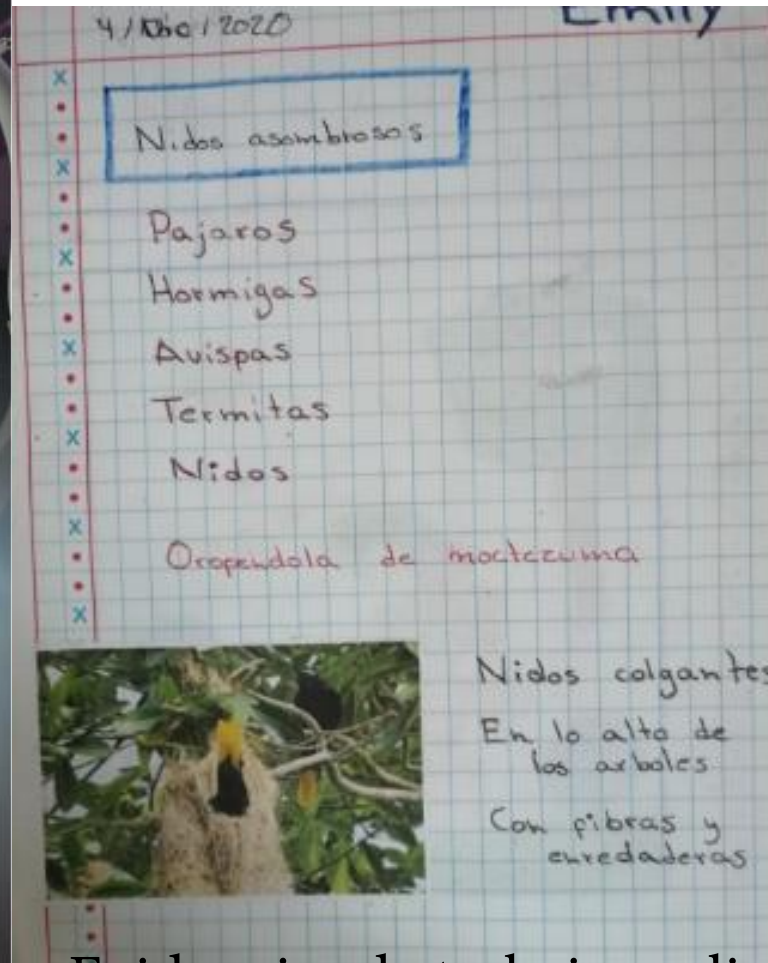 4/Dic/2020
Emily
Nidos asombrosos
Pajaros
Hormigas
Avispas
Termitas
Nidos
Oropendola de moctezuma
Nidos colgantes
En lo alto de
los arboles
Con fibras y
enredaderas